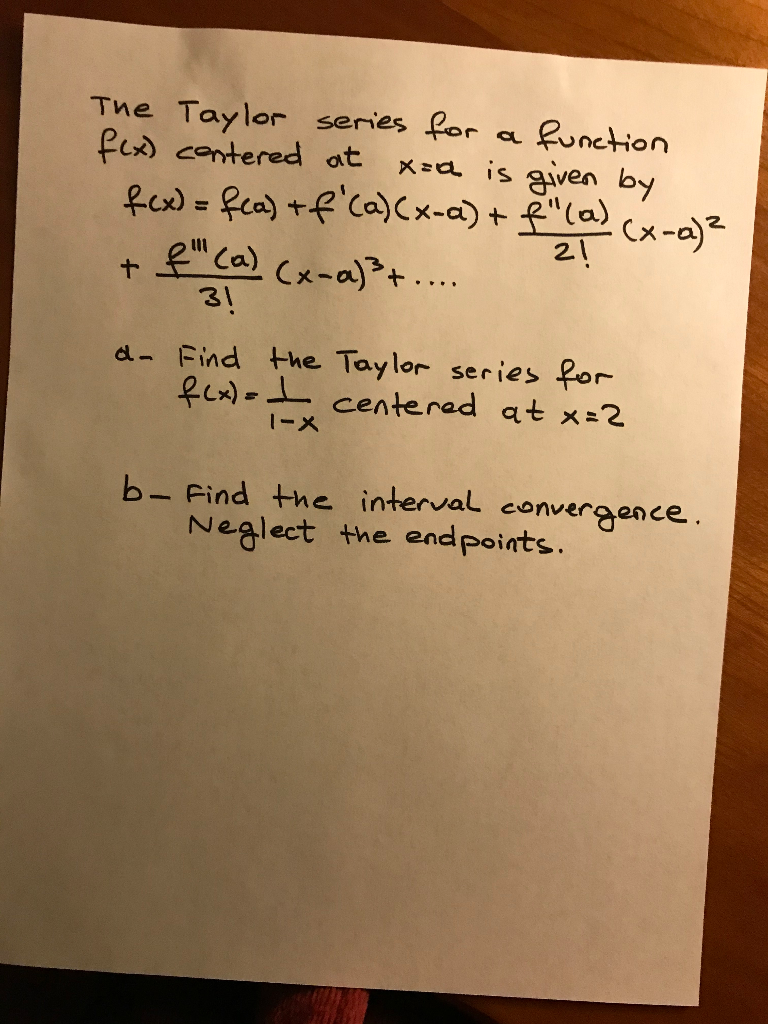 The Taylor series for a function
f(x) centered at x=a is given by
f(x) = f(a) + f'(a)(x-a) + f''(a)/2! (x-a)²
+ f'''(a)/3! (x-a)³ + ....
a- Find the Taylor series for
f(x) = 1/(1-x) centered at x=2
b- Find the interval convergence.
Neglect the endpoints.